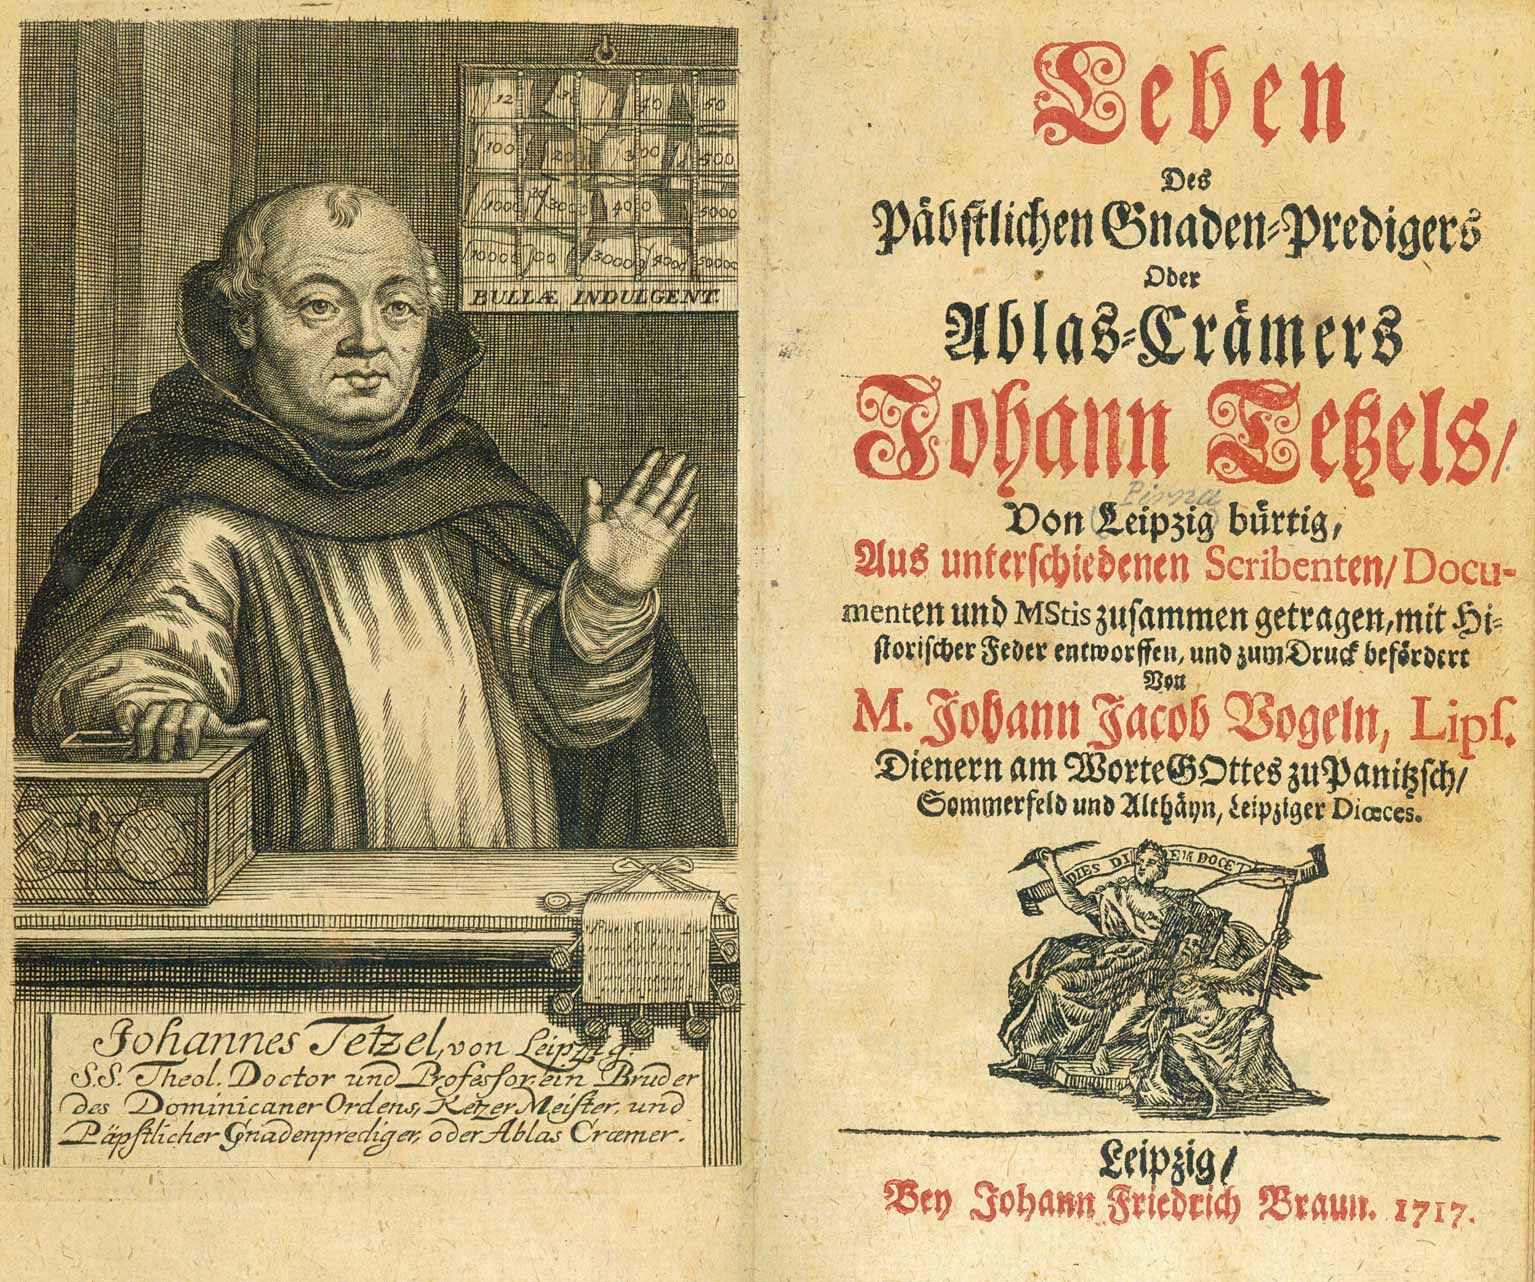 12 30 40 50
100 200 300 500
1000 3000 4000 5000
BULLÆ INDULGENT.
Johannes Tetzel, von Leipzig.
S.S. Theol. Doctor und Professor, ein Bruder
des Dominicaner Ordens, Ketzer Meister, und
Päpstlicher Gnadenprediger, oder Ablas Cræmer.
Leben
Des
Päbstlichen Gnaden-Predigers
Oder
Ablas-Crämers
Johann Tetzels/
Pirna
Von (Leipzig) bürtig,
Aus unterschiedenen Scribenten/ Docu-
menten und MStis zusammen getragen, mit Hi-
storischer Feder entworffen, und zum Druck befördert
Von
M. Johann Jacob Vogeln, Lips.
Dienern am Worte GOttes zu Panitzsch/
Sommerfeld und Althäyn, Leipziger Diœces.
DIES DIEM DOCET
Leipzig/
Bey Johann Friedrich Braun. 1717.